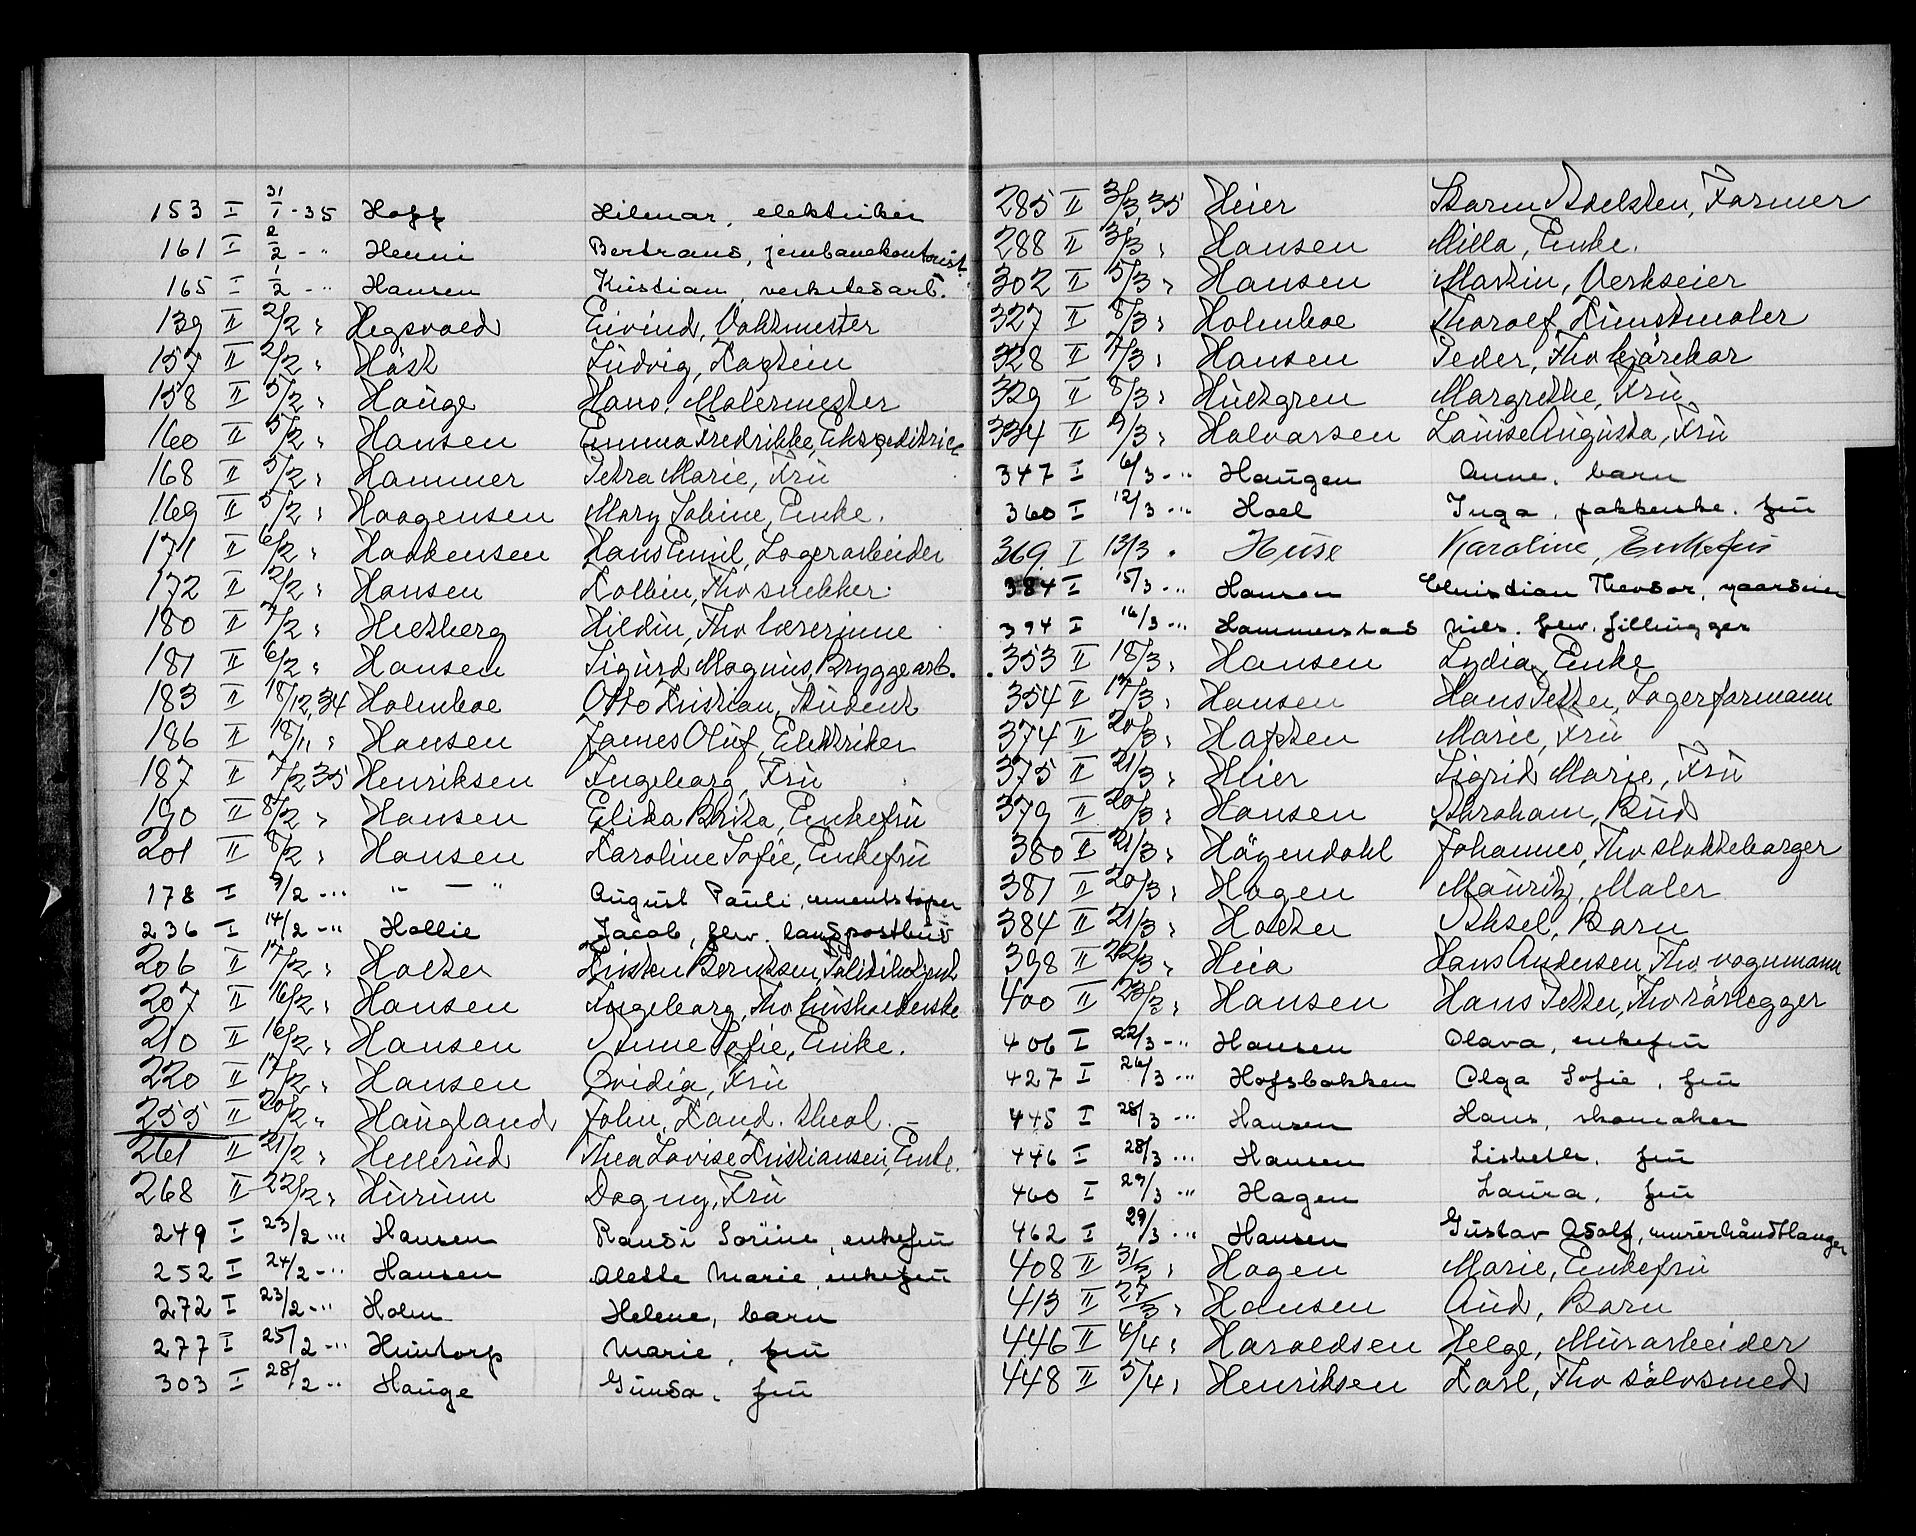 153 I 31/1-35 Hoff Hilmar, elektriker
161 I 2/2 -" Henni Bertrand, jernbanekontorist.
165 I 1/2 -" Hansen Kristian, verkstedsarb.
139 II 2/2 " Hegsvold Eivind, Vaktmester
157 II 2/2 " Høst Ludvig, Kaptein
158 II 5/2 " Hauge Hans, Malermester
160 II 5/2 " Hansen Emma Fredrikke, Ekspeditrice
168 II 5/2 " Hammer Petra Marie, Fru
169 II 5/2 " Haagensen Mary Sabine, Enke.
171 II 6/2 " Haakensen Hans Emil, Lagerarbeider
172 II 2/2 " Hansen Kolbin, Fhv snekker.
180 II 7/2 " Hertzberg Hildur, Fhv lærerinne
181 II 6/2 " Hansen Sigurd Magnus, Bryggearb.
183 II 18/12,34 Holmboe Otto Kristian, Student
186 II 18/11 " Hansen James Oluf, Elektriker
187 II 7/2 35 Henriksen Ingeborg, Fru
190 II 8/2 " Hansen Elika Brita, Enkefru
201 II 8/2 " Hansen Karoline Sofie, Enkefru
178 I 9/2 -" " — " August Pauli, sementstøper
236 I 14/2 -" Hollie Jacob, fhv. landpostbud
206 II 17/2 " Holter Kristen Berntsen, Politibetjent
207 II 16/2 " Hansen Ingeborg, Fhv husholderske
210 II 16/2 " Hansen Anne Sofie, Enke.
220 II 17/2 " Hansen Ovidia, Fru
255 II 20/2 " Haugland John, Kand. theol.
261 II 21/2 " Hellerud Thea Lovise Kristiansen, Enke.
268 II 22/2 " Hurum Dagny, Fru
249 I 23/2 -" Hansen Randi Sørine, enkefru
252 I 24/2 -" Hansen Alette Marie, enkefru
272 I 23/2 -" Holm Helene, barn
277 I 25/2 -" Huntorp Marie, fru
303 I 28/2 -" Hauge Gunda, fru
285 II 3/3,35 Heier Karen Adelsten, Farmer
288 II 3/3 " Hansen Milla, Enke.
302 II 5/3 " Hansen Martin, Verkseier
327 II 8/3 " Holmboe Thorolf, Kunstmaler
328 II 7/3 " Hansen Peder, Fhv kjørekar
329 II 8/3 " Hultgren Margrethe, Fru
334 II 9/3 " Halvorsen Louise Augusta, Fru
347 I 6/3 -" Haugen Anne, barn
360 I 12/3 -" Hoel Inga, pakkerske, fru
369. I 13/3 " Huse Karoline, Enkefru
384 I 15/3 -" Hansen Christian Theodor, gaardeier
394 I 16/3 -" Hammerstad Nils, fhv. fillingger
353 II 18/3 " Hansen Lydia, Enke
354 II 17/3 " Hansen Hans Petter, Lagerformann
374 II 20/3 " Haften Marie, Fru
375 II 21/3 " Heier Sigrid Marie, Fru
379 II 20/3 " Hansen Abraham, Bud
380 II 21/3 " Høgendahl Johannes, Fhv slakteborger
381 II 20/3 " Hagen Mauritz, Maler
384 II 21/3 " Holter Aksel, Barn
398 II 22/3 " Heia Hans Andersen, Fhv vognmann
400 II 23/3 " Hansen Hans Petter, Fhv rørlegger
406 I 22/3 -" Hansen Olava, enkefru
427 I 26/3 -" Hofsbakken Olga Sofie, fru
445 I 28/3 -" Hansen Hans, skomaker
446 I 28/3 -" Hansen Lisbeth, fru
460 I 29/3 -" Hagen Laura, fru
462 I 29/3 -" Hansen Gustav Adolf, murerhåndtlanger
408 II 31/3 " Hagen Marie, Enkefru
413 II 27/3 " Hansen Aud, Barn
446 II 4/4 " Haraldsen Helge, Murarbeider
448 II 5/4 " Henriksen Karl, Fhv sølvsmed